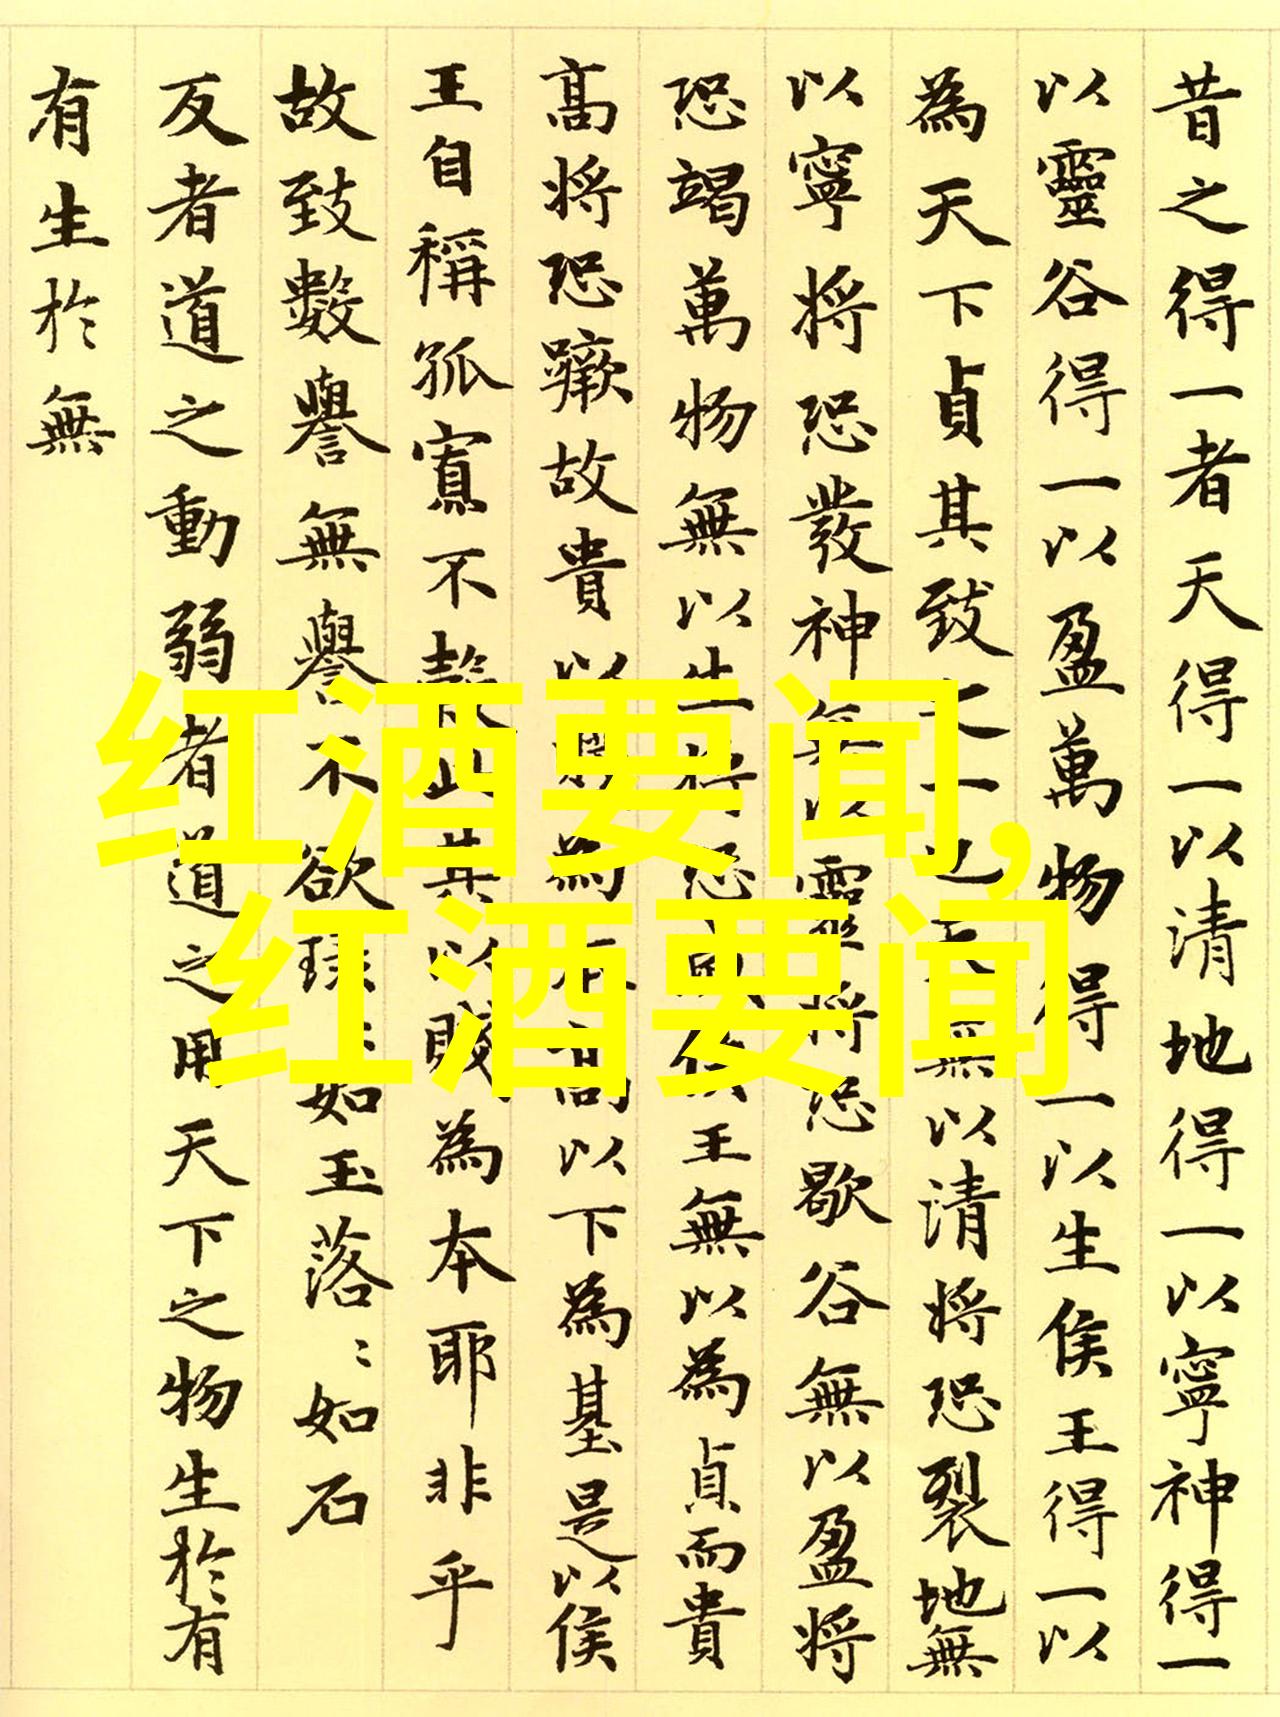 昔之得一者天得一以清地得一以寧神得一
以靈谷得一以盈萬物得一以生侯王得一以
為天下貞其致之一也天無以清將恐裂地無
以寧將恐發神無以靈將恐歇谷無以盈將
恐竭萬物無以生將恐滅侯王無以為貞而貴
高將恐蹶故貴以賤為本高以下為基是以侯
王自稱孤寡不穀此其以賤為本耶非乎
故致數譽無譽不欲琭〻如玉落〻如石
反者道之動弱者道之用天下之物生於有
有生於無
红酒要闻,
红酒要闻